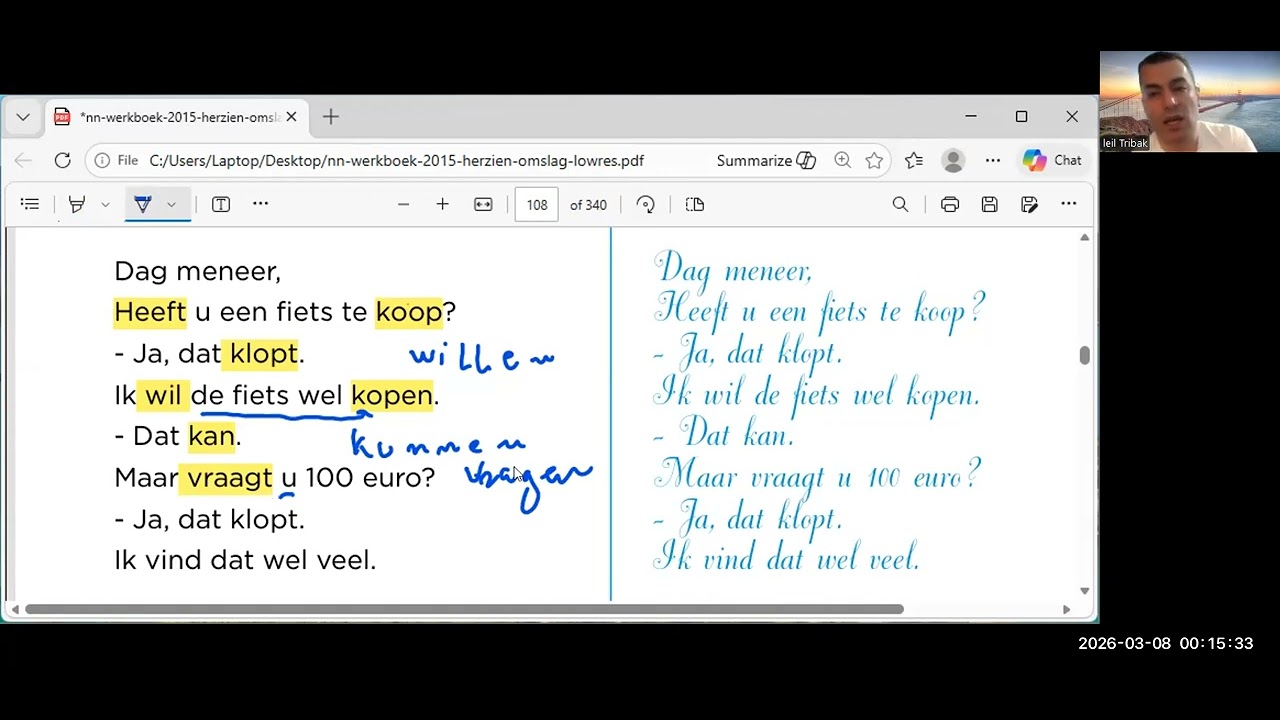 *nn-werkboek-2015-herzien-omsla
File C:/Users/Laptop/Desktop/nn-werkboek-2015-herzien-omslag-lowres.pdf Summarize Chat
108 of 340
leil Tribak
Dag meneer,
Heeft u een fiets te koop?
- Ja, dat klopt.
willen
Ik wil de fiets wel kopen.
- Dat kan.
kunnen
Maar vraagt u 100 euro?
vragen
- Ja, dat klopt.
Ik vind dat wel veel.
Dag meneer,
Heeft u een fiets te koop?
- Ja, dat klopt.
Ik wil de fiets wel kopen.
- Dat kan.
Maar vraagt u 100 euro?
- Ja, dat klopt.
Ik vind dat wel veel.
2026-03-08 00:15:33